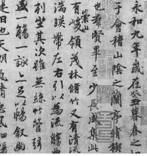 永和九年歲在癸丑暮
于會稽山陰之蘭亭脩禊
也羣賢畢至少長咸集
領茂林脩竹又有清
湍暎帶左右引以為流
列坐其次雖無絲竹管
一觴一詠亦足以暢敘幽
日也天朗